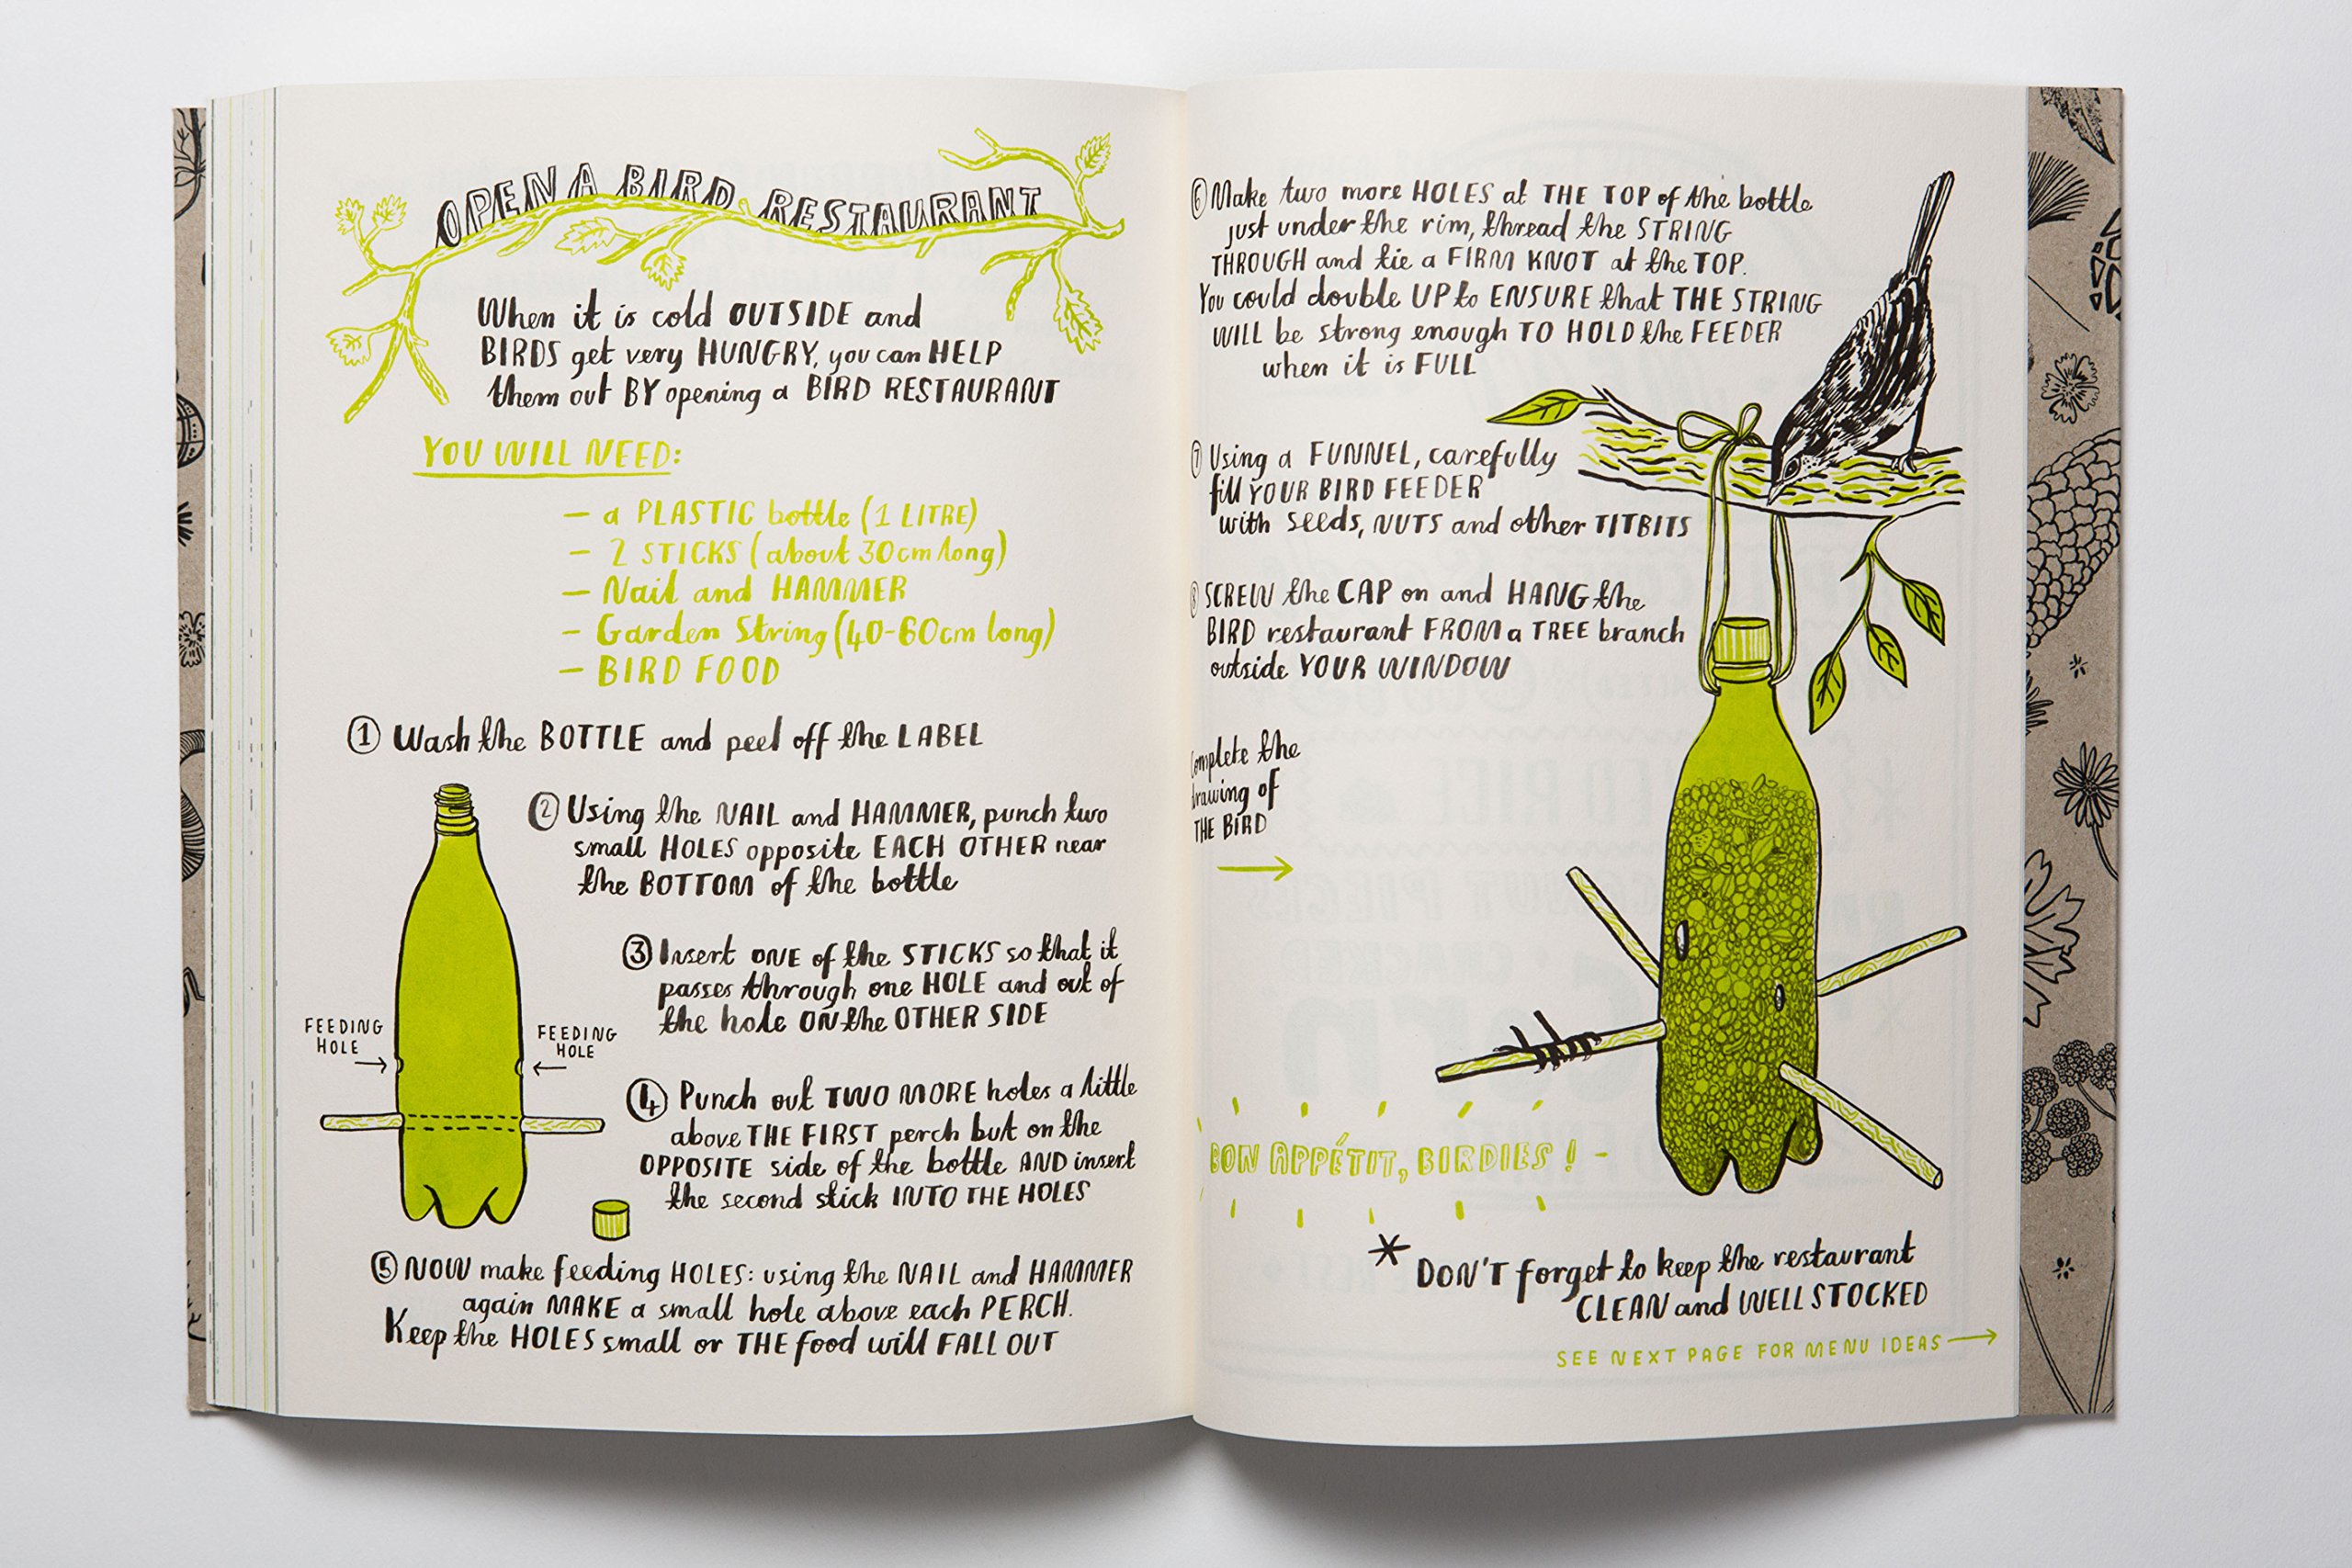 OPEN A BIRD RESTAURANT
When it is cold OUTSIDE and
BIRDS get very HUNGRY, you can HELP
them out BY opening a BIRD RESTAURANT
YOU WILL NEED:
— a PLASTIC bottle (1 LITRE)
— 2 STICKS (about 30cm long)
— Nail and HAMMER
— Garden String (40-60cm long)
— BIRD FOOD
① Wash the BOTTLE and peel off the LABEL
② Using the NAIL and HAMMER, punch two
small HOLES opposite EACH OTHER near
the BOTTOM of the bottle
③ Insert ONE of the STICKS so that it
passes through one HOLE and out of
the hole ON the OTHER SIDE
FEEDING
HOLE
FEEDING
HOLE
④ Punch out TWO MORE holes a little
above THE FIRST perch but on the
OPPOSITE side of the bottle AND insert
the second stick INTO THE HOLES
⑤ NOW make feeding HOLES: using the NAIL and HAMMER
again MAKE a small hole above each PERCH.
Keep the HOLES small or THE food will FALL OUT
⑥ Make two more HOLES at THE TOP of the bottle
just under the rim, thread the STRING
THROUGH and tie a FIRM KNOT at the TOP.
You could double UP to ENSURE that THE STRING
WILL be strong enough TO HOLD the FEEDER
when it is FULL
⑦ Using a FUNNEL, carefully
fill YOUR BIRD FEEDER
with seeds, NUTS and other TITBITS
⑧ SCREW the CAP on and HANG the
BIRD restaurant FROM a TREE branch
outside YOUR WINDOW
Complete the
drawing of
THE BIRD
BON APPÉTIT, BIRDIES ! -
* DON'T forget to keep the restaurant
CLEAN and WELL STOCKED
SEE NEXT PAGE FOR MENU IDEAS